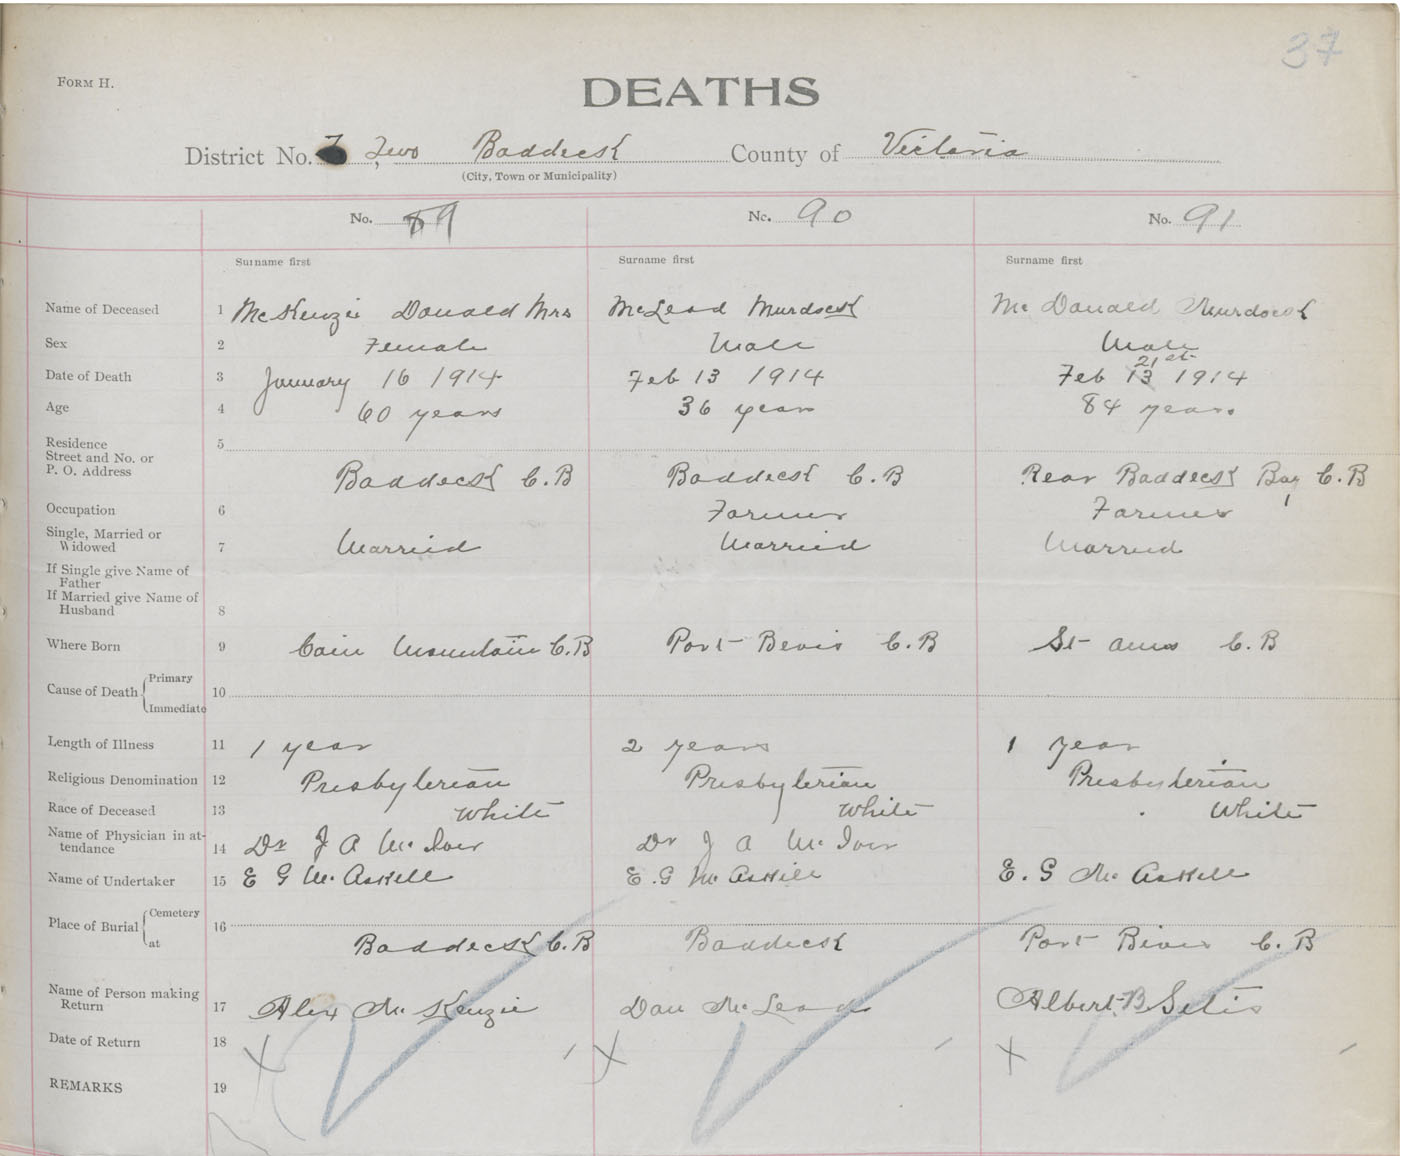 37
FORM H.
DEATHS
District No. Two Baddeck County of Victoria
(City, Town or Municipality)
No. 89 No. 90 No. 91
Surname first Surname first Surname first
Name of Deceased 1 McKenzie Donald Mrs McLeod Murdock McDonald Murdock
Sex 2 Female Male Male
21st
Date of Death 3 January 16 1914 Feb 13 1914 Feb 13 1914
Age 4 60 years 36 years 84 years
Residence 5
Street and No. or
P. O. Address Baddeck C.B Baddeck C.B Rear Baddeck Bay C.B
Occupation 6 Farmer Farmer
Single, Married or
Widowed 7 Married Married Married
If Single give Name of
Father
If Married give Name of
Husband 8
Where Born 9 Cain Mountain C.B Port Bevis C.B St Anns C.B
Cause of Death Primary 10
Immediate
Length of Illness 11 1 year 2 years 1 year
Religious Denomination 12 Presbyterian Presbyterian Presbyterian
Race of Deceased 13 White White White
Name of Physician in at-
tendance 14 Dr J A McIver Dr J A McIver
Name of Undertaker 15 E G McAskill E.G McAskill E.G McAskill
Place of Burial Cemetery 16
at Baddeck C.B Baddeck Port Bevis C.B
Name of Person making
Return 17 Alex McKenzie Dan McLeod Albert B
Date of Return 18
REMARKS 19